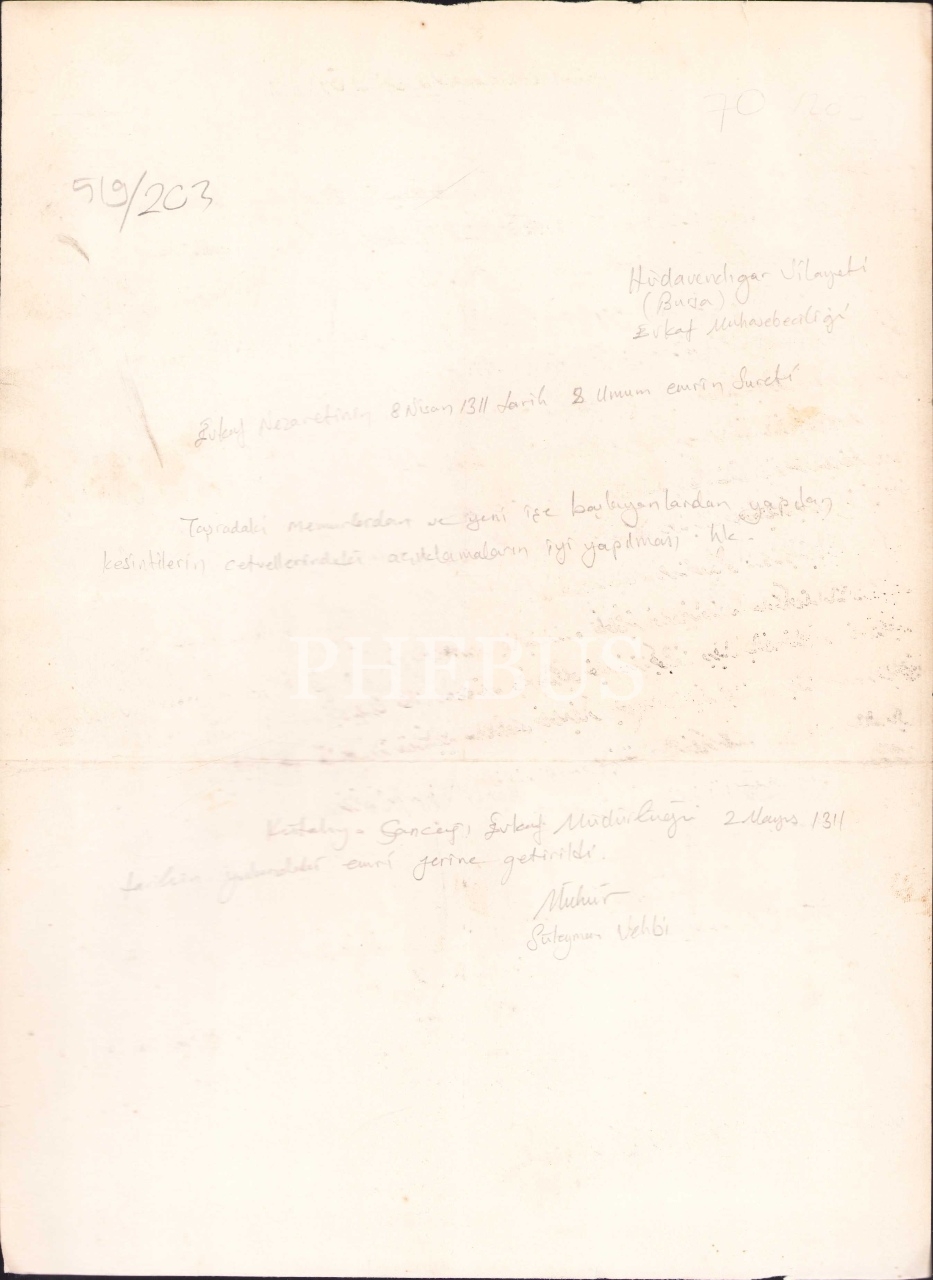 70
519/203
Hüdavendigar Vilayeti
(Bursa)
Evkaf Muhasebeciliği
Evkaf Nezaretinin 8 Nisan 1311 tarih 8 Umum emrin Sureti
Taşradaki memurlardan ve yeni işe başlıyanlardan yapılan
kesintilerin cetvellerindeki açıklamaların iyi yapılması hk.
PHEBUS
Kütahya Sancağı Evkaf Müdürlüğü 2 Mayıs 1311
emri yerine getirildi.
Mühür
Süleyman Vehbi